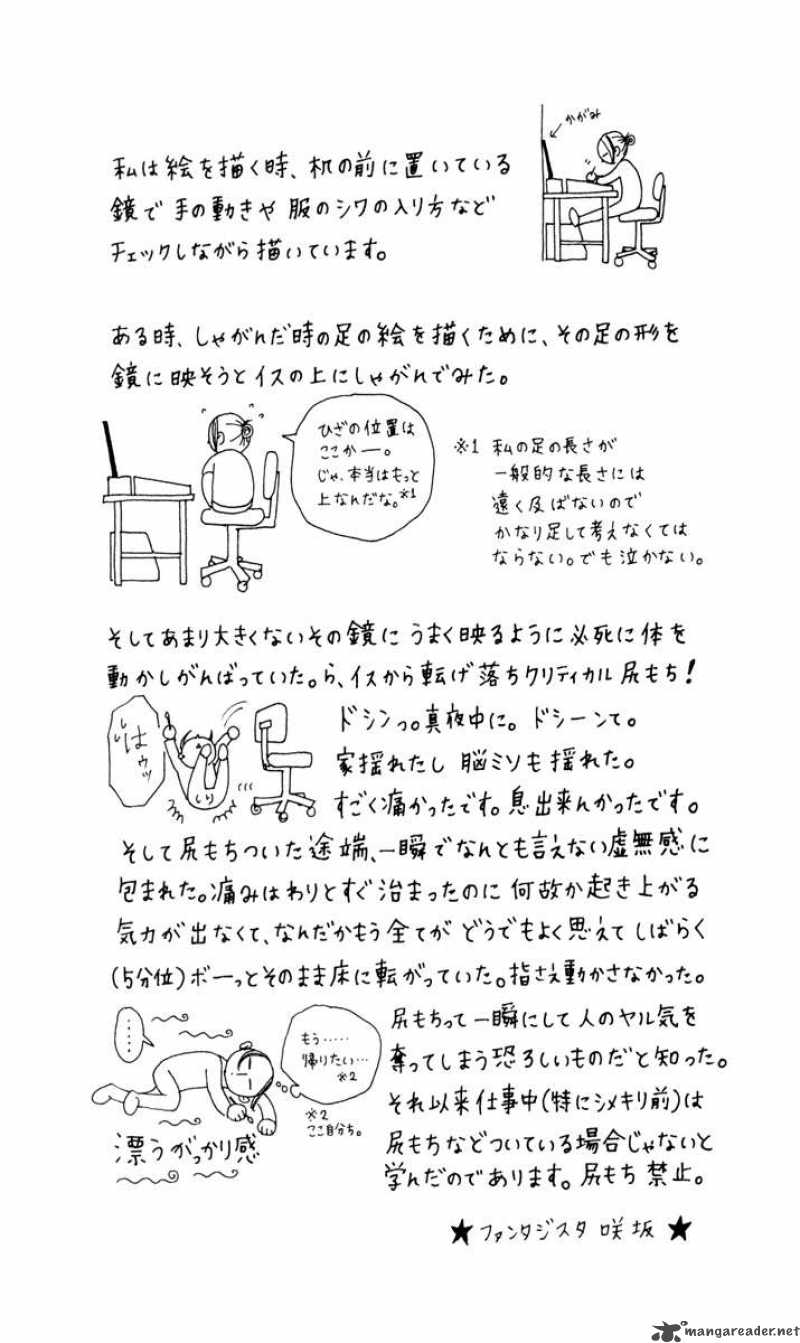 かがみ
私は絵を描く時、机の前に置いている
鏡で手の動きや服のシワの入り方など
チェックしながら描いています。
ある時、しゃがんだ時の足の絵を描くために、その足の形を
鏡に映そうとイスの上にしゃがんでみた。
ひざの位置は
ここかー。
じゃ、本当はもっと
上なんだな。※1
※1 私の足の長さが
一般的な長さには
遠く及ばないので
かなり足して考えなくては
ならない。でも泣かない。
そしてあまり大きくないその鏡にうまく映るように必死に体を
動かしがんばっていた。ら、イスから転げ落ちクリティカル尻もち!
はウッ
しり
ドシンっ。真夜中に。ドシーンて。
家揺れたし脳ミソも揺れた。
すごく痛かったです。息出来んかったです。
そして尻もちついた途端、一瞬でなんとも言えない虚無感に
包まれた。痛みはわりとすぐ治まったのに何故か起き上がる
気力が出なくて、なんだかもう全てがどうでもよく思えてしばらく
(5分位)ボーっとそのまま床に転がっていた。指さえ動かさなかった。
‥‥‥
もう‥‥‥
帰りたい…
※2
※2
ここ自分ち。
漂うがっかり感
尻もちって一瞬にして人のヤル気を
奪ってしまう恐ろしいものだと知った。
それ以来仕事中(特にシメキリ前)は
尻もちなどついている場合じゃないと
学んだのであります。尻もち禁止。
★ファンタジスタ咲坂★
mangareader.net